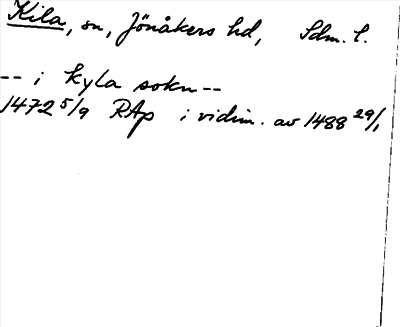 Kila, sn, Jönåkers hd, Sdm. l.
-- i kyla sokn --
1472 5/9 RAp i vidim. av 1488 29/1